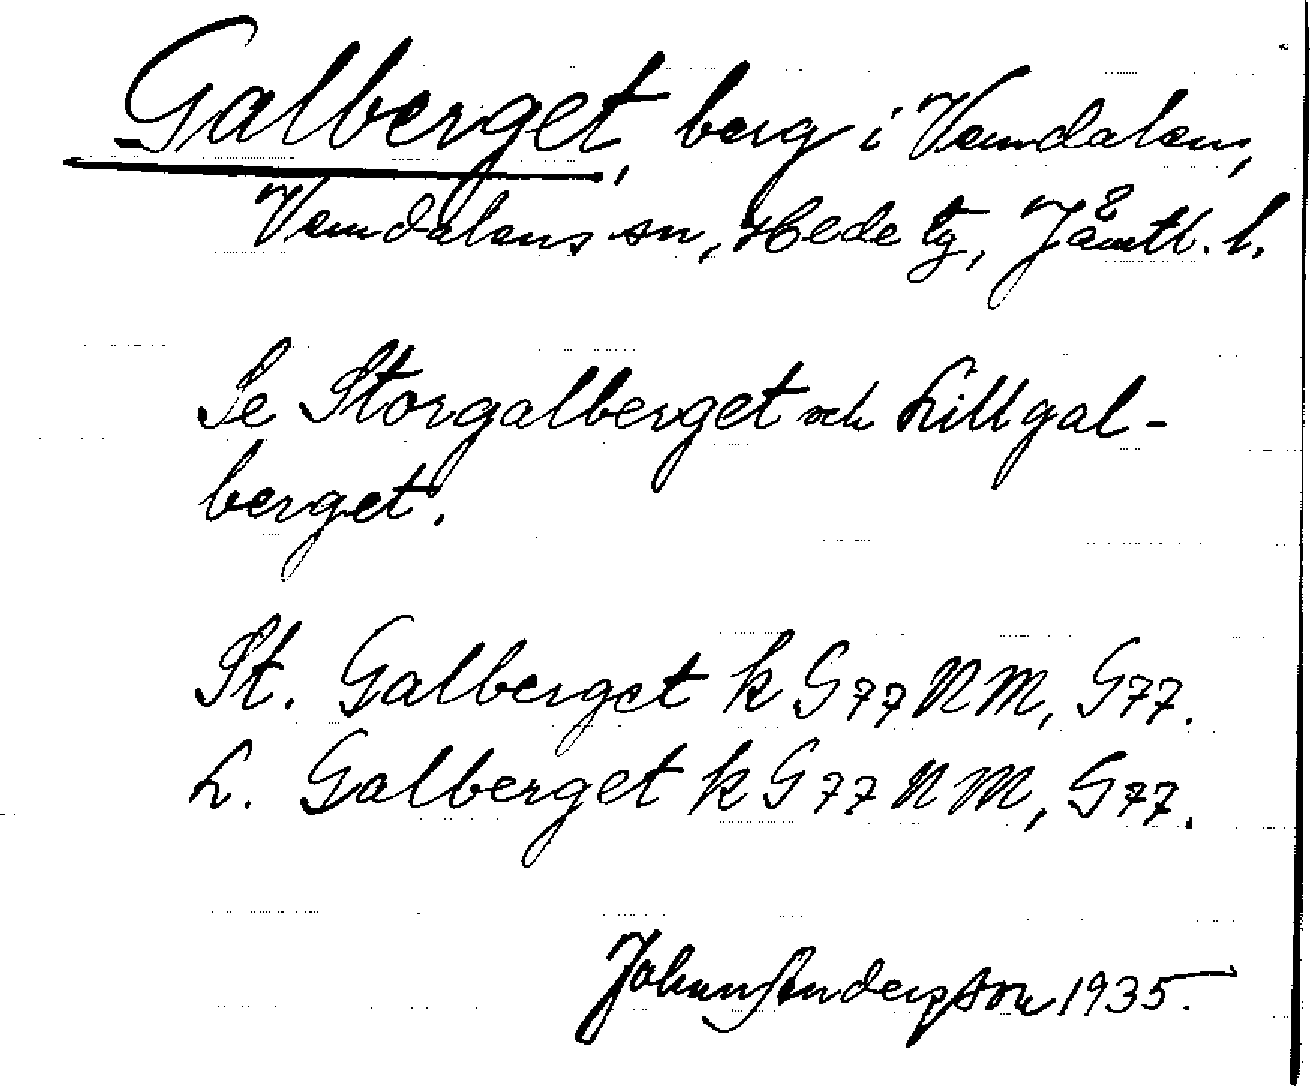 Galberget, berg i Vemdalens,
Vemdalens sn, Hede tg, Jämtl. l.
Se Storgalberget och Lillgal-
berget.
St. Galberget k G77NM, G77.
L. Galberget k G77NM, G77.
Johan Anderson 1935.